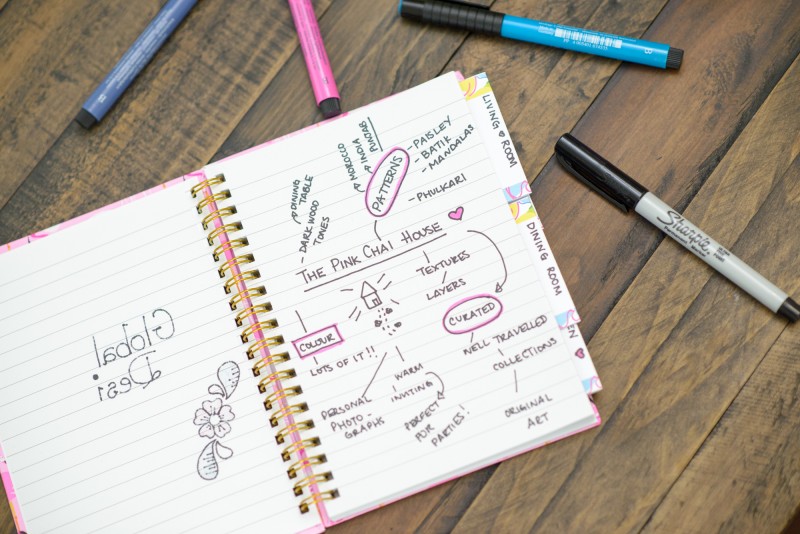 Global
Desi
MOROCCO
INDIA
PUNJAB
PATTERNS
- PAISLEY
- BATIK
- MANDALAS
- PHULKARI
DINING
TABLE
- DARK WOOD
TONES
THE PINK CHAI HOUSE
TEXTURES
LAYERS
CURATED
WELL TRAVELLED
COLLECTIONS
ORIGINAL
ART
COLOUR
LOTS OF IT!!
PERSONAL
PHOTO-
GRAPHS
WARM
INVITING
PERFECT
FOR
PARTIES!
LIVING ROOM
DINING ROOM
Sharpie